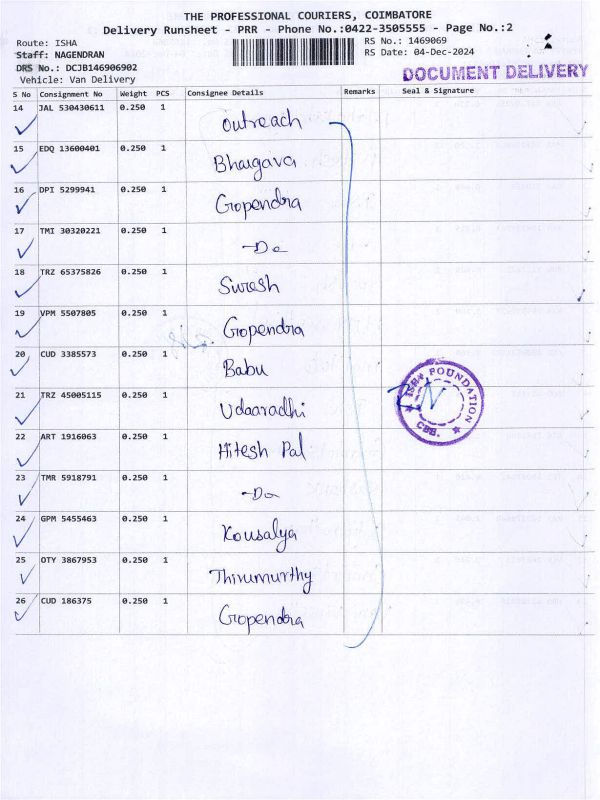 THE PROFESSIONAL COURIERS, COIMBATORE
Delivery Runsheet - PRR - Phone No.:0422-3505555 - Page No.:2
Route: ISHA
Staff: NAGENDRAN
DRS No.: DCJB146906902
Vehicle: Van Delivery
RS No.: 1469069
RS Date: 04-Dec-2024
DOCUMENT DELIVERY
S No Consignment No Weight PCS Consignee Details Remarks Seal & Signature
14 JAL 530430611 0.250 1 Outreach
15 EDQ 13600401 0.250 1 Bhargava
16 DPI 5299941 0.250 1 Gopendra
17 TMI 30320221 0.250 1 -Do
18 TRZ 65375826 0.250 1 Suresh
19 VPM 5507805 0.250 1 Gopendra
20 CUD 3385573 0.250 1 Babu
21 TRZ 45005115 0.250 1 Udaaradhi
22 ART 1916063 0.250 1 Hitesh Pal
23 TMR 5918791 0.250 1 -Do
24 GPM 5455463 0.250 1 Kousalya
25 OTY 3867953 0.250 1 Thirumurthy
26 CUD 186375 0.250 1 Gopendra
ISHA FOUNDATION
CBE.